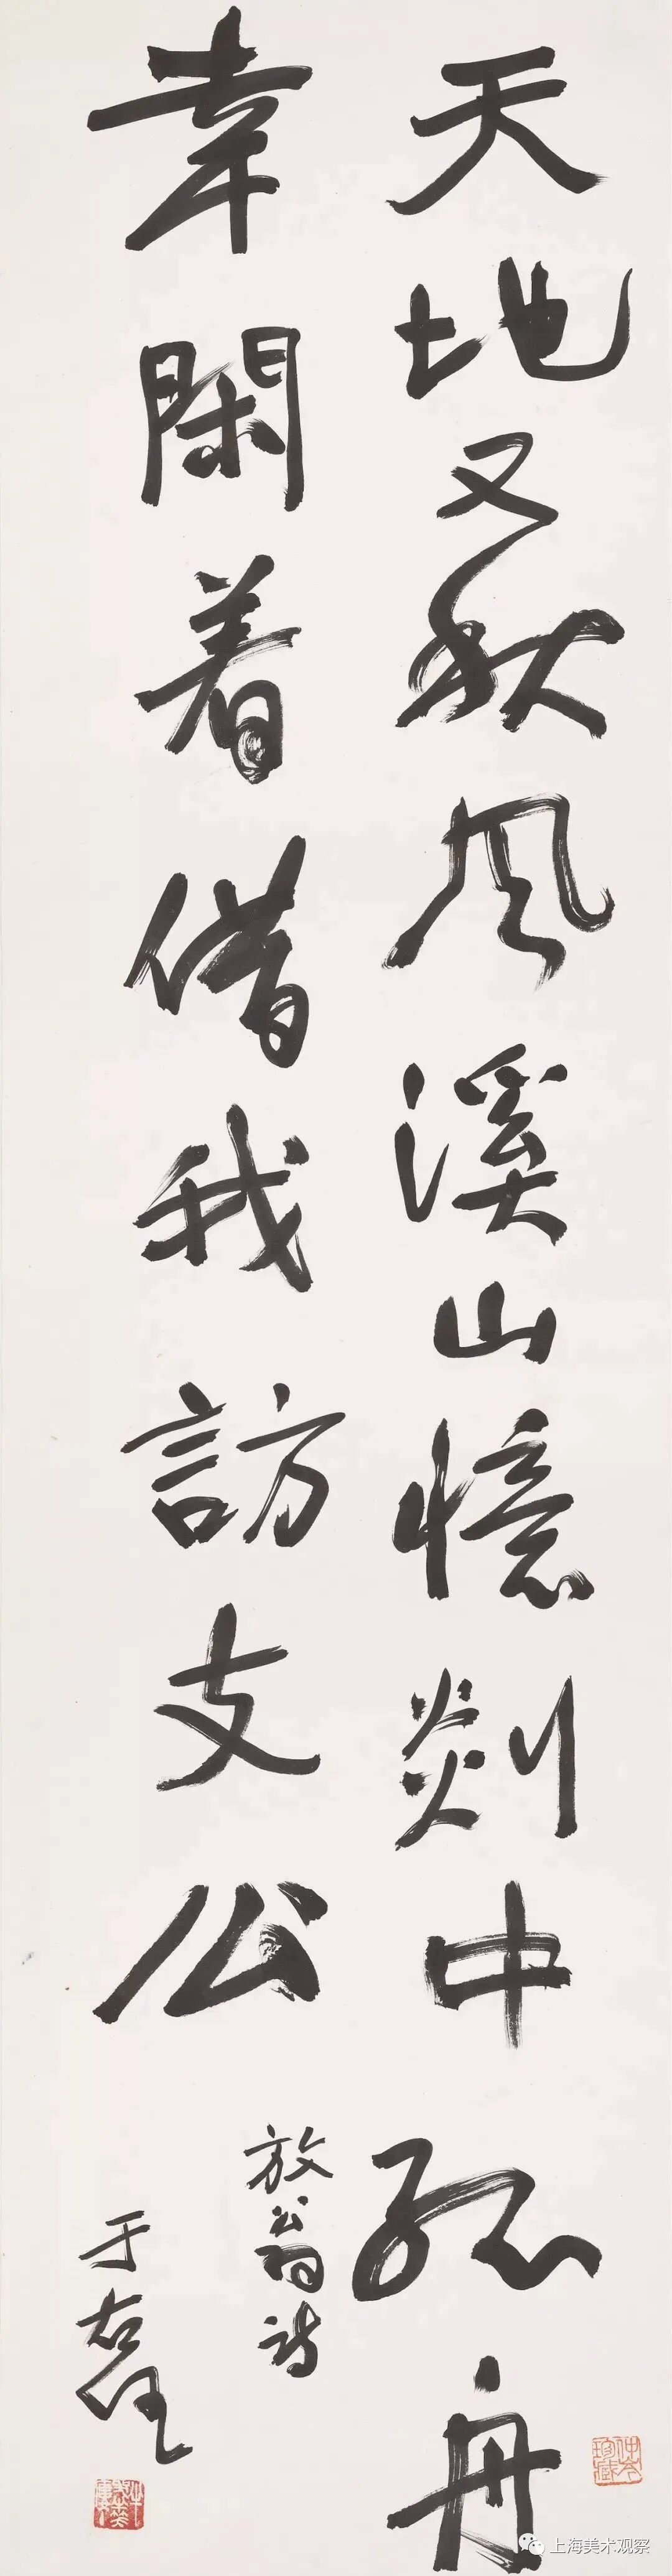 天地又秋風溪山憶剡中孤舟
幸閑着借我訪支公
放翁詩
于右任
仲令珍藏
上海美术观察